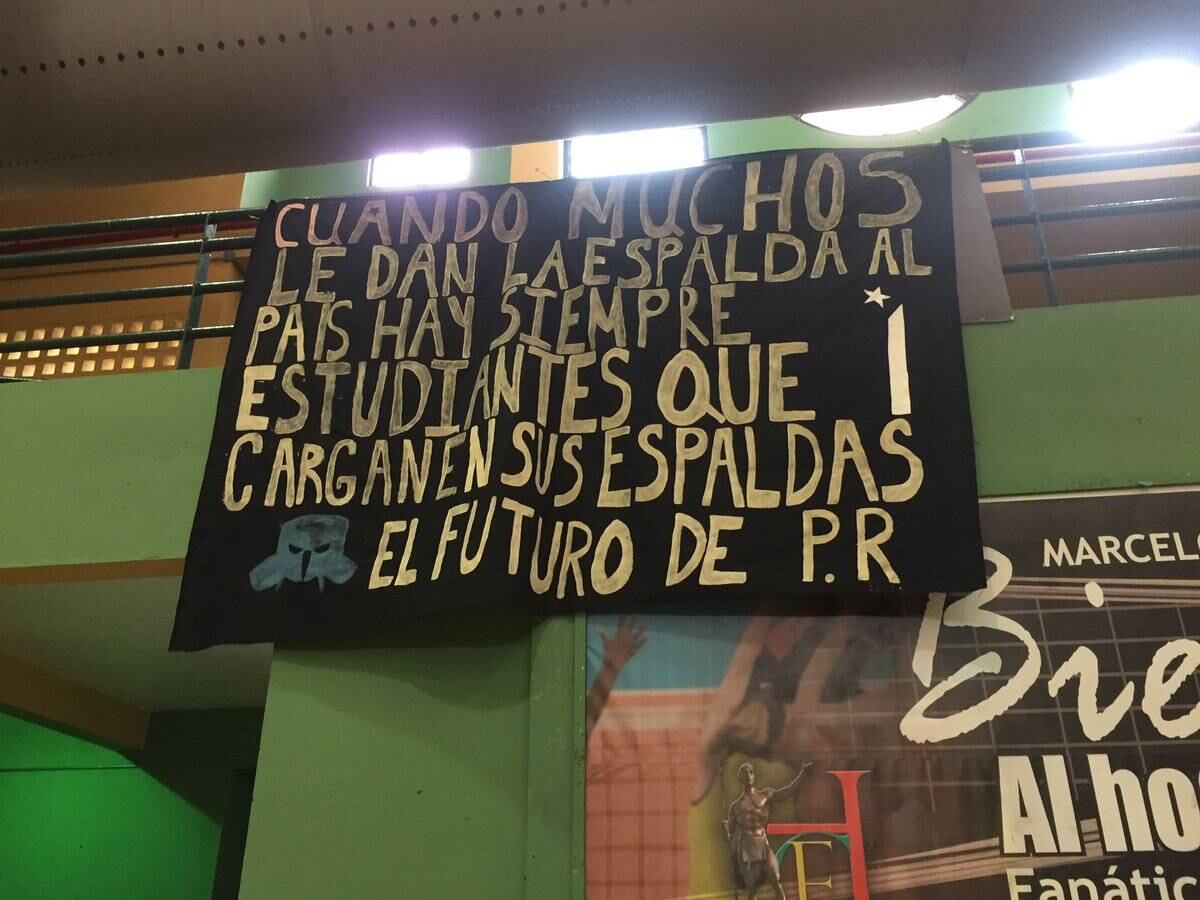 CUANDO MUCHOS
LE DAN LA ESPALDA AL
PAIS HAY SIEMPRE
ESTUDIANTES QUE
CARGAN EN SUS ESPALDAS
EL FUTURO DE P.R
MARCEL
Bie
Al ho
Fanátic
HE